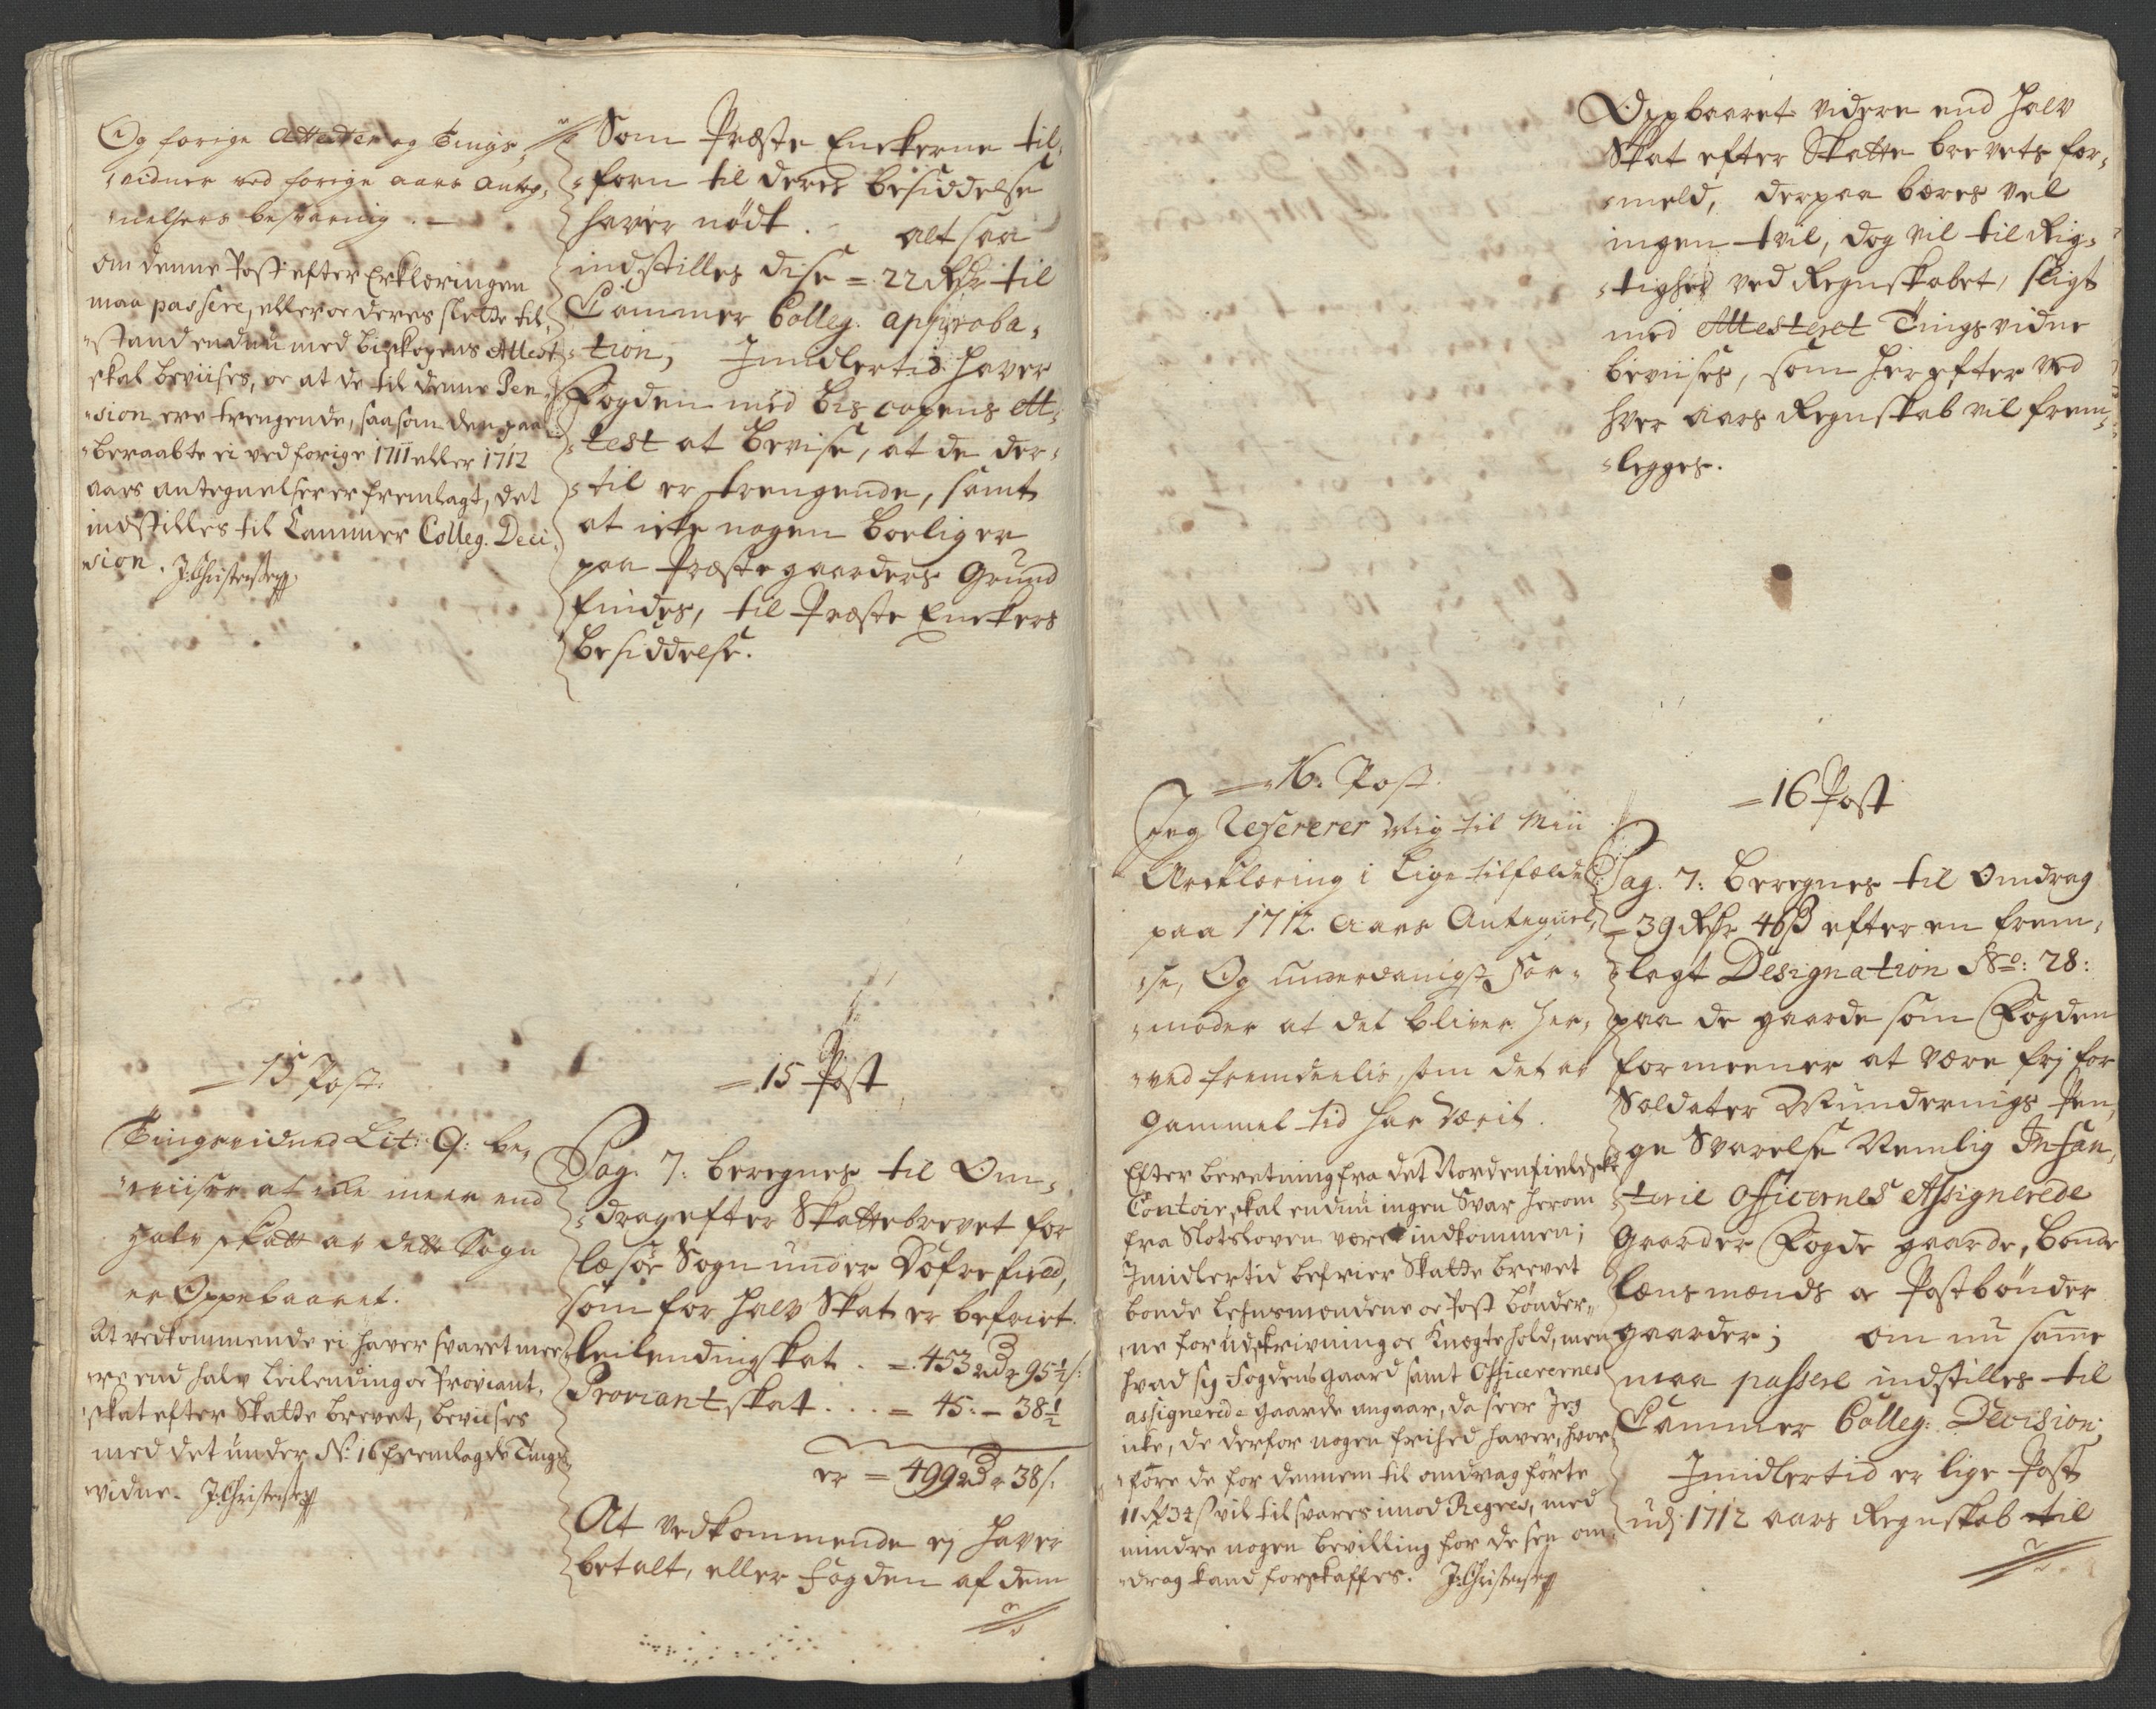 Og forige Attester og Tings-
vidner ved forige aars Anteg-
nelsers besvaring.
Om denne Post efter Erklæringen
maa passere, eller oc deres slette til-
stand endnu med Biskopens Attest
skal beviises, oc at de til denne Pen-
sion ere trengende, saasom den paa-
beraabte ei ved forige 1711 eller 1712
aars antegnelser er fremlagt, det
indstilles til Cammer Colleg. Deci-
sion. J: Christensen
Som Præste Enckerne til-
forn til deres besiddelse
haver nödt. alt saa
indstilles disse = 22 Rdr til
Cammer Colleg. approba-
tion, Imidlertid haver
Fogden med biscopens At-
test at bevise, at de der-
til er trengende, samt
at icke nogen boelig er
paa Præste gaarders Grund
findes, til Præste Enckers
besiddelse.
15 Post.
Tingsvidned Lit: Q: be-
viiser at icke meer end
halv skatt av dette Sogn
er Oppebaaret.
At vedkommende ei haver svaret mee-
re end halv Leilending oc Proviant-
skat efter Skatte brevet, beviises
med det under N: 16 fremlagde Tings
vidne. J: Christensen
15 Post
Pag. 7: beregnes til Om-
drag efter Skattebrevet for
læsöe Sogn under Dofrefield,
som for halv Skat er befriet.
Leilendingskat . = 453 rdr 95½ s:
Proviantskat . . . = 45: – 38½
er = 499 rdr 38 s:
At vedkommende ej haver
betalt, eller Fogden af dem
Oppbaaret videre end halv
Skat efter Skatte brevets for-
meld, derpaa bæres vel
ingen tvil, dog vil til Rig-
tighed ved Regnskabet, sligt
med Attesteret Tingsvidne
beviises, som hereftter ved
hver aars Regnskab vil frem-
legges.
16. Post.
Jeg Refererer Mig til Min
Ærklæring i Lige tilfælde
paa 1712. Aars Antegnel-
se, Og underdanigst for-
moder at det bliver her-
ved fremdeelis, som det af
gammel tid har værit.
Efter beretning fra det Nordenfieldske
Contoir, skal endnu ingen Svar herom
fra Slotsloven være indkommen;
Imidlertid befrier Skatte brevet
bonde Lehnsmændene oc Post bönder-
ne for udskrivning oc Knegtehold, men
hvad sig Fogdens gaard samt Officerernes
assignerede gaarde angaar, da seer Jeg
icke, de derfor nogen frihed haver, hvor-
före de for dennem til omdrag förte
11 Rd 34 s vil tilsvares imod Regres, med
mindre nogen bevilling for de sen om-
drag kand forskaffes. J: Christensen
16 Post
Pag. 7: beregnes til Omdrag
39 Rdr 46 s efter en frem-
lagt Designation No: 28:
paa de gaarde som Fogden
formeener at være frj for
Soldater Mundernings Pen-
ge Svarelse Nemlig Infan-
terie Officernes Assignerede
Gaarder Fogde gaarde, bonde
lænsmænds oc Postbönder
gaarder; om nu same
maa passere indstilles til
Cammer Colleg: Decision;
Imidlertid er lige Post
udj 1712 aars Regnskab til